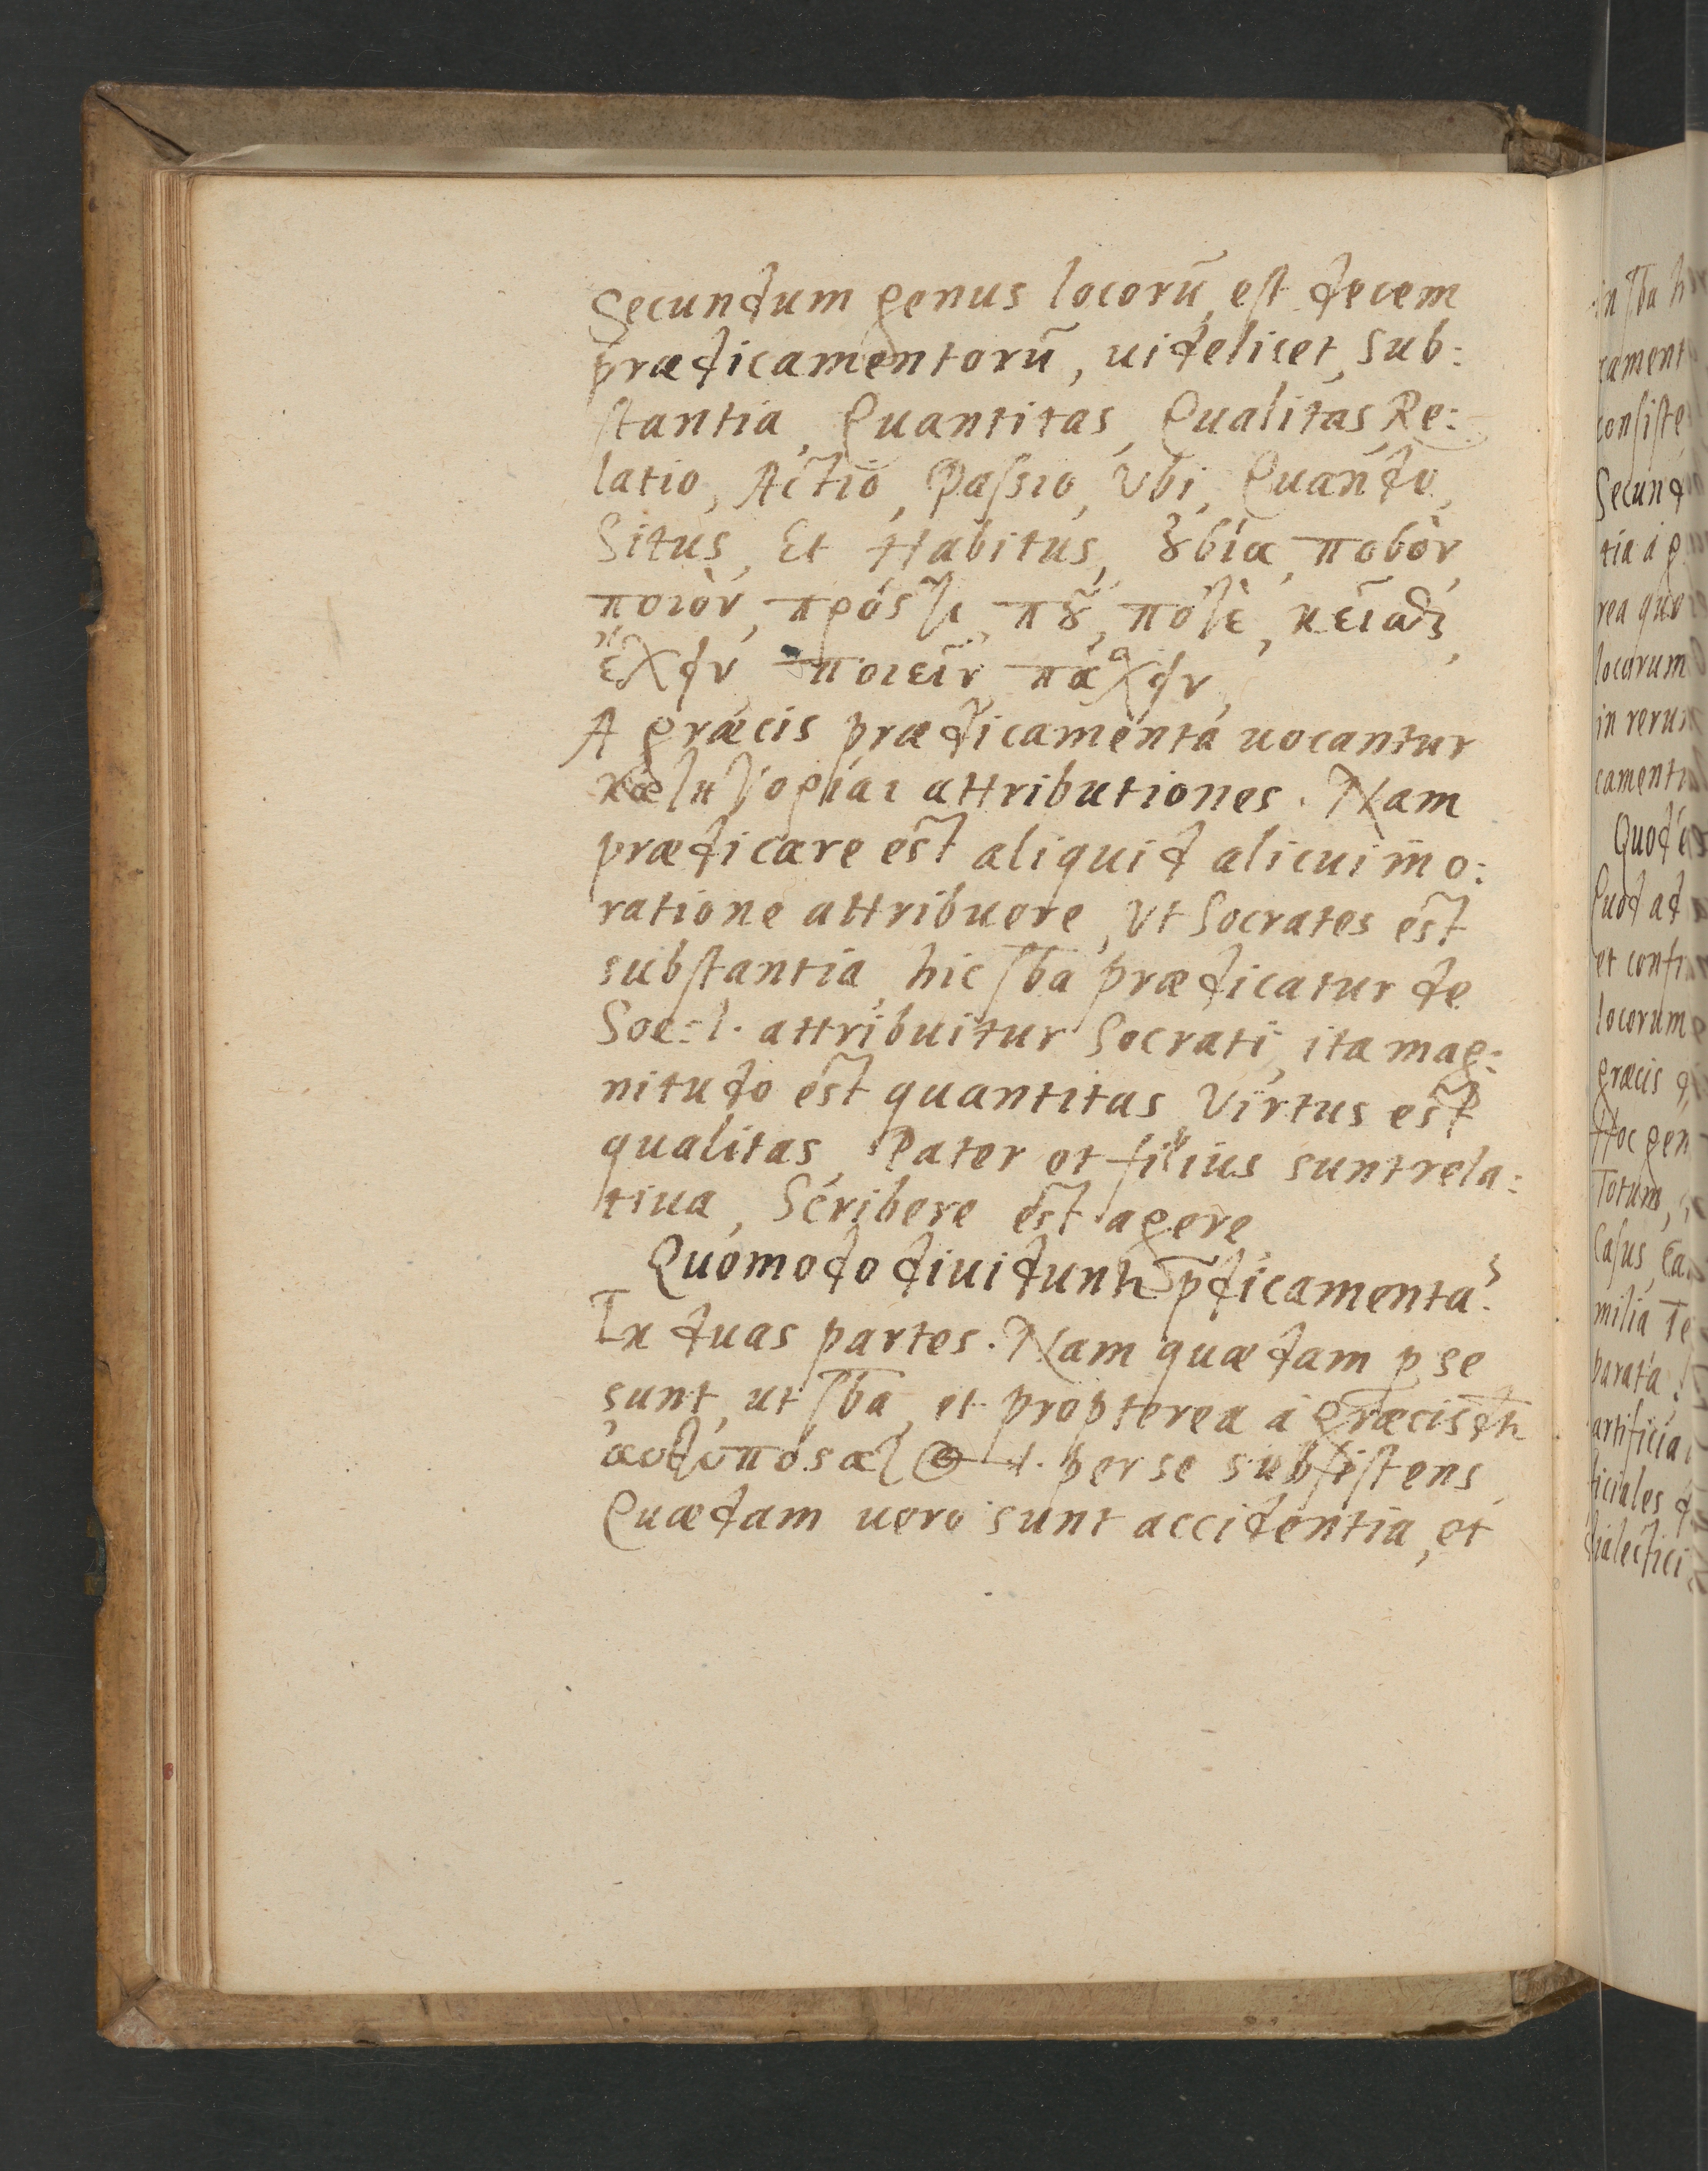 Secundum genus locorū est decem
prædicamentorū, uidelicet, Sub:
stantia, Quantitas, Qualitas, Re:
latio, Actio, Passio, Vbi, Quando,
Situs, Et Habitus, ȣσία, ποσὸν,
ποιὸν, πρόςτι, πȣ͂, ποτὲ, κεῖσθαι,
ἔχειν, ποιεῖν, πάσχειν,
A græcis prædicamenta uocantur
κατηγορίαι attributiones. Nam
prædicare est aliquid alicui in o:
ratione attribuere, Vt Socrates est
substantia, hic sba prædicatur de
Soc: .i. attribuitur Socrati, ita mag:
nitudo est quantitas, Virtus est
qualitas, Pater et filius sunt rela:
tiua, Scribere est agere
Quomodo diuidunt᷑ p̄dicamenta?
In duas partes. Nam quædam p se
sunt, ut sba, et propterea á græcis
.i. per se subsistens
Quædam uero sunt accidentia, et
in sba h
cament
consiste
Secund
tia á g
rea quæ
locorum
in rerum
camenti
Quod e
Quod ad
et confi
locorum
græcis q
Hoc gen
Totum,
Casus, Ca
milia Te
parata
artificia
ficiales
dialectici